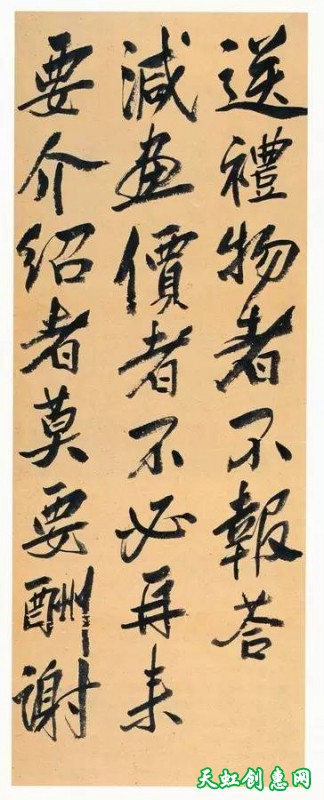 送禮物者不報荅
減畫價者不必再来
要介紹者莫要酬謝
天虹创惠网